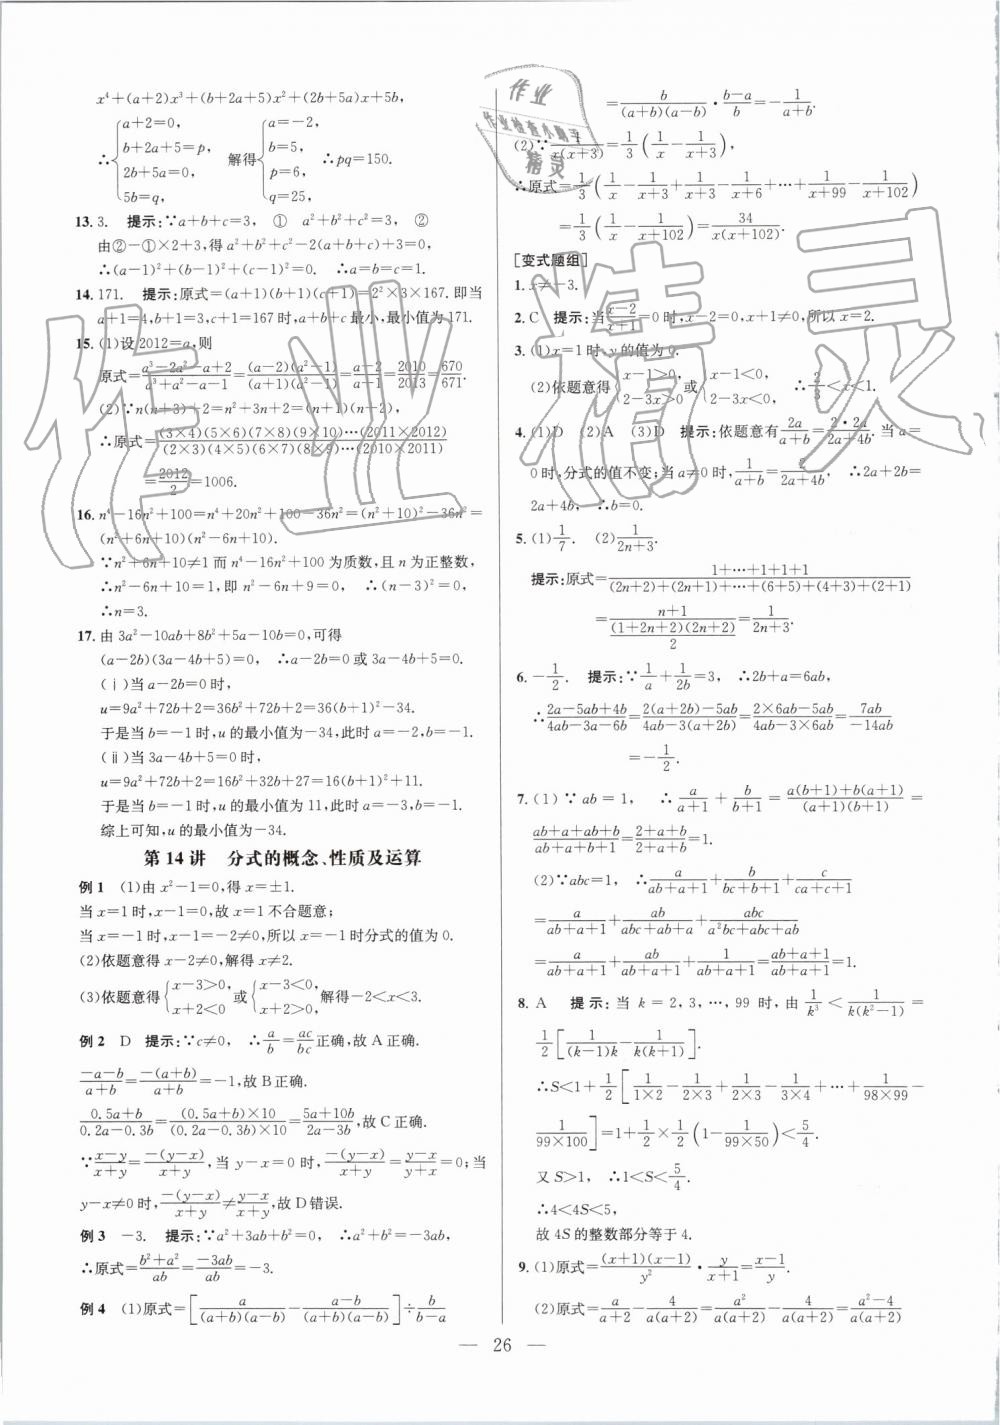 x⁴+(a+2)x³+(b+2a+5)x²+(2b+5a)x+5b,
∴{a+2=0, b+2a+5=p, 2b+5a=0, 5b=q, 解得{a=-2, b=5, p=6, q=25, ∴pq=150.
13. 3. 提示:∵a+b+c=3, ① a²+b²+c²=3, ②
由②-①×2+3,得a²+b²+c²-2(a+b+c)+3=0;
∴(a-1)²+(b-1)²+(c-1)²=0. ∴a=b=c=1.
14. 171. 提示:原式=(a+1)(b+1)(c+1)=2²×3×167.即当
a+1=4,b+1=3,c+1=167时,a+b+c最小,最小值为171.
15. (1)设2012=a,则
原式=(a³-2a²-a+2)/(a³+a²-a-1)=(a-2)(a²-1)/(a+1)(a²-1)=(a-2)/(a+1)=2010/2013=670/671.
(2)∵n(n+3)+2=n²+3n+2=(n+1)(n+2),
∴原式=(3×4)(5×6)(7×8)(9×10)…(2011×2012)/(2×3)(4×5)(6×7)(8×9)…(2010×2011)
=2012/2=1006.
16. n⁴-16n²+100=n⁴+20n²+100-36n²=(n²+10)²-36n²=
(n²+6n+10)(n²-6n+10).
∵n²+6n+10≠1而n⁴-16n²+100为质数,且n为正整数,
∴n²-6n+10=1,即n²-6n+9=0, ∴(n-3)²=0.
∴n=3.
17. 由3a²-10ab+8b²+5a-10b=0,可得
(a-2b)(3a-4b+5)=0, ∴a-2b=0或3a-4b+5=0.
(ⅰ)当a-2b=0时,
u=9a²+72b+2=36b²+72b+2=36(b+1)²-34.
于是当b=-1时,u的最小值为-34,此时a=-2,b=-1.
(ⅱ)当3a-4b+5=0时,
u=9a²+72b+2=16b²+32b+27=16(b+1)²+11.
于是当b=-1时,u的最小值为11,此时a=-3,b=-1.
综上可知,u的最小值为-34.
第14讲 分式的概念、性质及运算
例1 (1)由x²-1=0,得x=±1.
当x=1时,x-1=0,故x=1不合题意;
当x=-1时,x-1=-2≠0,所以x=-1时分式的值为0.
(2)依题意得x-2≠0,解得x≠2.
(3)依题意得{x-3>0, x+2<0 或{x-3<0, x+2>0, 解得-2<x<3.
例2 D 提示:∵c≠0, ∴a/b=ac/bc正确,故A正确.
(-a-b)/(a+b)=-(a+b)/(a+b)=-1,故B正确.
(0.5a+b)/(0.2a-0.3b)=(0.5a+b)×10/(0.2a-0.3b)×10=(5a+10b)/(2a-3b),故C正确.
∵(x-y)/(x+y)=-(y-x)/(x+y),当y-x=0时,-(y-x)/(x+y)=(y-x)/(y+x)=0;当
y-x≠0时,-(y-x)/(x+y)≠(y-x)/(x+y),故D错误.
例3 -3. 提示:∵a²+3ab+b²=0, ∴a²+b²=-3ab,
∴原式=(b²+a²)/ab=-3ab/ab=-3.
例4 (1)原式=[a/(a+b)(a-b)-(a-b)/(a+b)(a-b)]÷b/(b-a)
=b/(a+b)(a-b)·(b-a)/b=-1/(a+b).
(2)∵1/x(x+3)=1/3(1/x-1/(x+3)),
∴原式=1/3(1/x-1/(x+3)+1/(x+3)-1/(x+6)+…+1/(x+99)-1/(x+102))
=1/3(1/x-1/(x+102))=34/x(x+102).
[变式题组]
1. x≠-3.
2. C 提示:当(x-2)/(x+1)=0时,x-2=0,x+1≠0,所以x=2.
3. (1)x=1时,y的值为0.
(2)依题意得{x-1>0, 2-3x>0 或{x-1<0, 2-3x<0, ∴2/3<x<1.
4. (1)D (2)A (3)D 提示:依题意有2a/(a+b)=2·2a/(2a+4b).当a=
0时,分式的值不变;当a≠0时,1/(a+b)=2/(2a+4b), ∴2a+2b=
2a+4b, ∴b=0.
5. (1)1/7. (2)1/(2n+3).
提示:原式=(1+…+1+1+1)/((2n+2)+(2n+1)+…+(6+5)+(4+3)+(2+1))
=(n+1)/((1+2n+2)(2n+2)/2)=1/(2n+3).
6. -1/2. 提示:∵1/a+1/2b=3, ∴2b+a=6ab,
∴(2a-5ab+4b)/(4ab-3a-6b)=(2(a+2b)-5ab)/(4ab-3(a+2b))=(2×6ab-5ab)/(4ab-3×6ab)=7ab/-14ab
=-1/2.
7. (1)∵ab=1, ∴a/(a+1)+b/(b+1)=(a(b+1)+b(a+1))/(a+1)(b+1)=
(ab+a+ab+b)/(ab+a+b+1)=(2+a+b)/(2+a+b)=1.
(2)∵abc=1, ∴a/(ab+a+1)+b/(bc+b+1)+c/(ca+c+1)
=a/(ab+a+1)+ab/(abc+ab+a)+abc/(a²bc+abc+ab)
=a/(ab+a+1)+ab/(ab+a+1)+1/(ab+a+1)=(ab+a+1)/(ab+a+1)=1.
8. A 提示:当k=2,3,…,99时,由1/k³<1/k(k²-1)=
1/2[1/(k-1)k-1/k(k+1)].
∴S<1+1/2[1/1×2-1/2×3+1/2×3-1/3×4+…+1/98×99-
1/99×100]=1+1/2×1/2(1-1/99×50)<5/4.
又S>1, ∴1<S<5/4.
∴4<4S<5,
故4S的整数部分等于4.
9. (1)原式=(x+1)(x-1)/y²·y/(x+1)=(x-1)/y.
(2)原式=a/(a+2)-4/a(a+2)=a²/a(a+2)-4/a(a+2)=(a²-4)/a(a+2)
— 26 —
作业
作业检查小助手
精灵
作业精灵